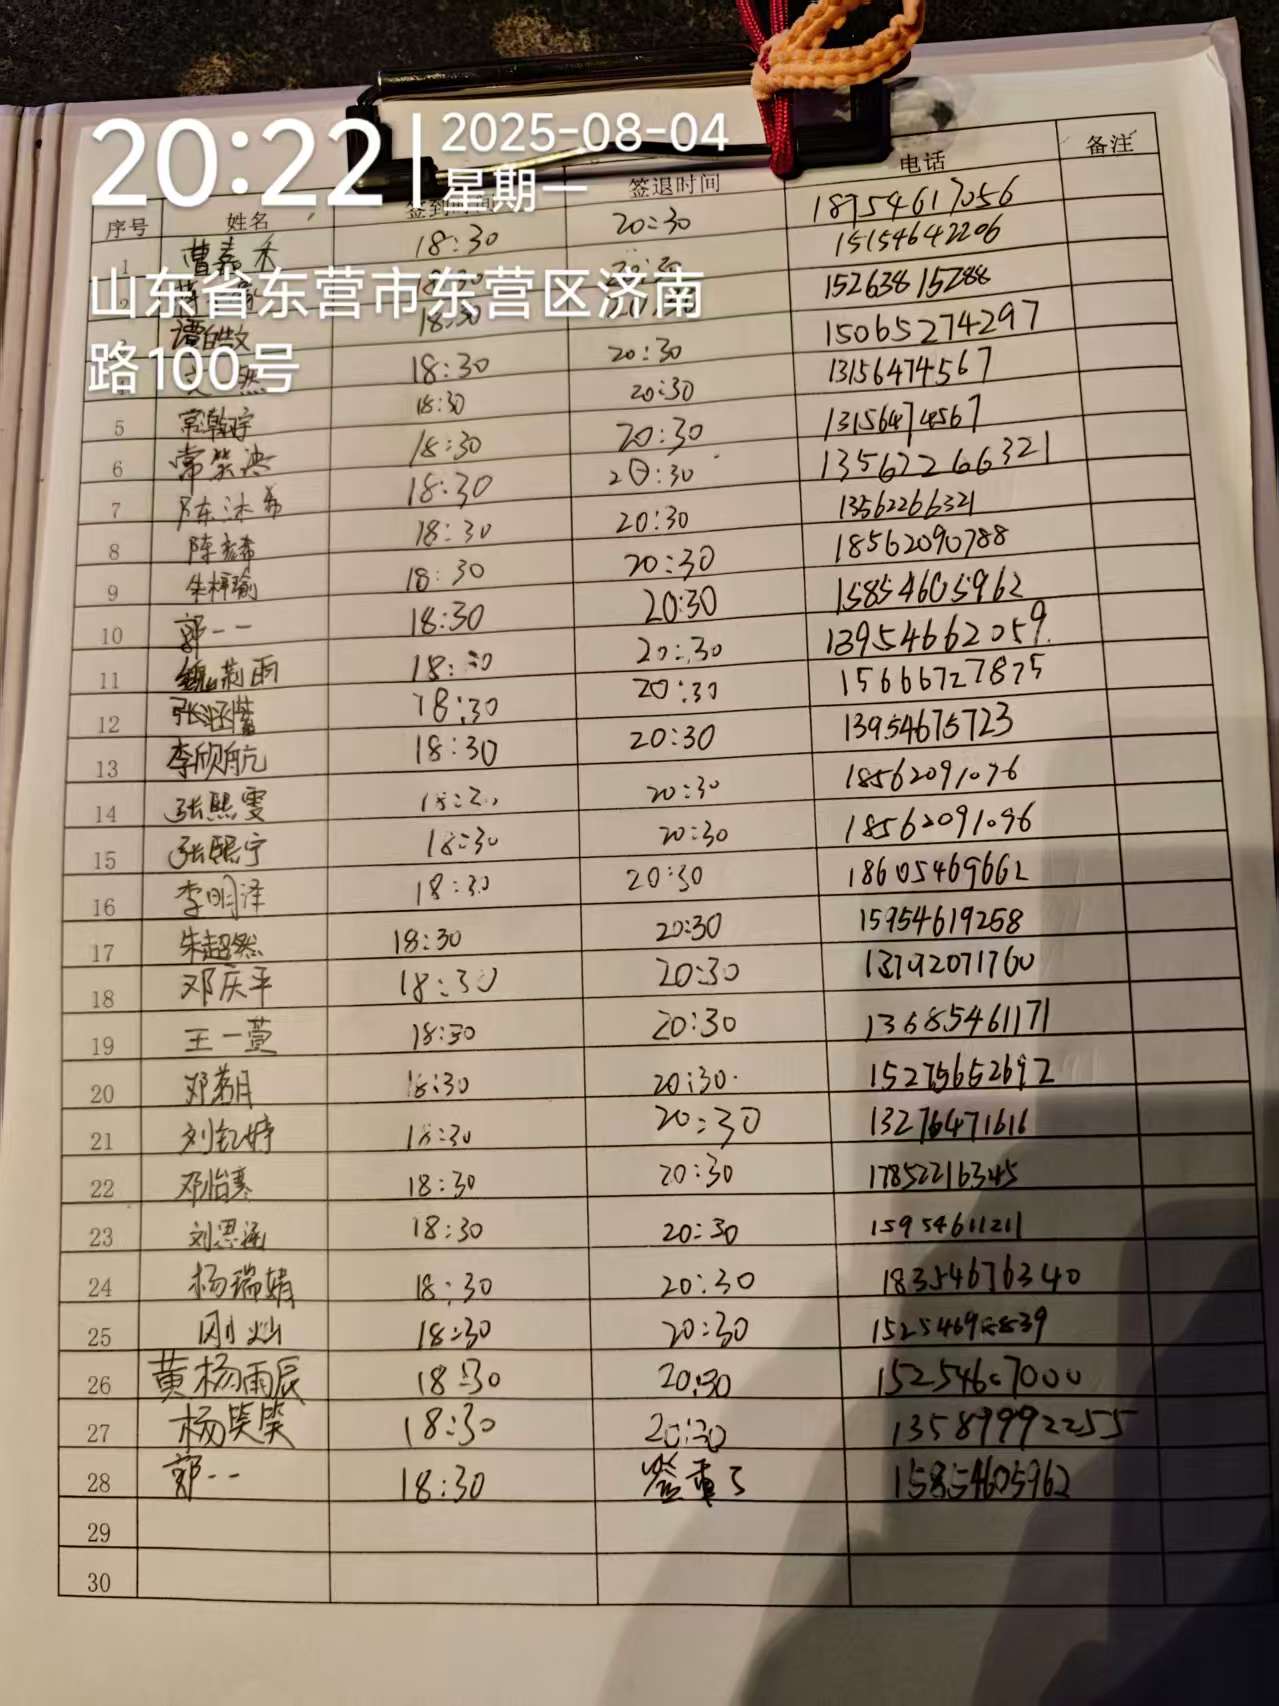 20:22 2025-08-04
星期一
山东省东营市东营区济南
路100号
序号 姓名 签到时间 签退时间 电话 备注
1 曹嘉禾 18:30 20:30 18954617056
2 18:30 20:30 15154642206
谭皓文 18:30 20:30 15263815288
18:30 20:30 15065274297
5 常瀚宇 18:30 20:30 13156474567
6 常 18:30 20:30 13156474567
7 陈沐希 18:30 20:30 13562266321
8 陈 希 18:30 20:30 13562266321
9 朱梓瑜 18:30 20:30 18562090788
10 郭一一 18:30 20:30 15854605962
11 魏莉雨 18:30 20:30 13954662059
12 张涵 18:30 20:30 15666727875
13 李欣航 18:30 20:30 13954675723
14 张熙雯 18:30 20:30 18562091096
15 张熙宁 18:30 20:30 18562091096
16 李明泽 18:30 20:30 18605469662
17 朱超然 18:30 20:30 15954619258
18 邓庆平 18:30 20:30 13792071760
19 王一萱 18:30 20:30 13685461171
20 邓若月 18:30 20:30 15275652692
21 刘钇婷 18:30 20:30 13276471616
22 邓怡寒 18:30 20:30 17852216345
23 刘思涵 18:30 20:30 15954611211
24 杨瑞婧 18:30 20:30 18354676340
25 刚灿 18:30 20:30
26 黄杨雨辰 18:30 20:30 15254607000
27 杨笑笑 18:30 20:30 13589992255
28 郭一一 18:30 签重了 15854605962
29
30